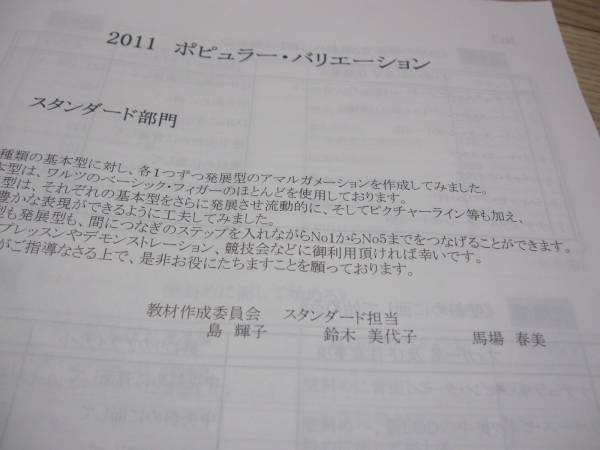 2011 ポピュラー・バリエーション
スタンダード部門
種類の基本型に対し、各1つずつ発展型のアマルガメーションを作成してみました。
本型は、ワルツのベーシック・フィガーのほとんどを使用しております。
型は、それぞれの基本型をさらに発展させ流動的に、そしてピクチャーライン等も加え、
豊かな表現ができるように工夫してみました。
型も発展型も、間につなぎのステップを入れながらNo1からNo5までをつなげることができます。
プレッスンやデモンストレーション、競技会などに御利用頂ければ幸いです。
がご指導なさる上で、是非お役にたちますことを願っております。
教材作成委員会 スタンダード担当
島 輝子 鈴木 美代子 馬場 春美